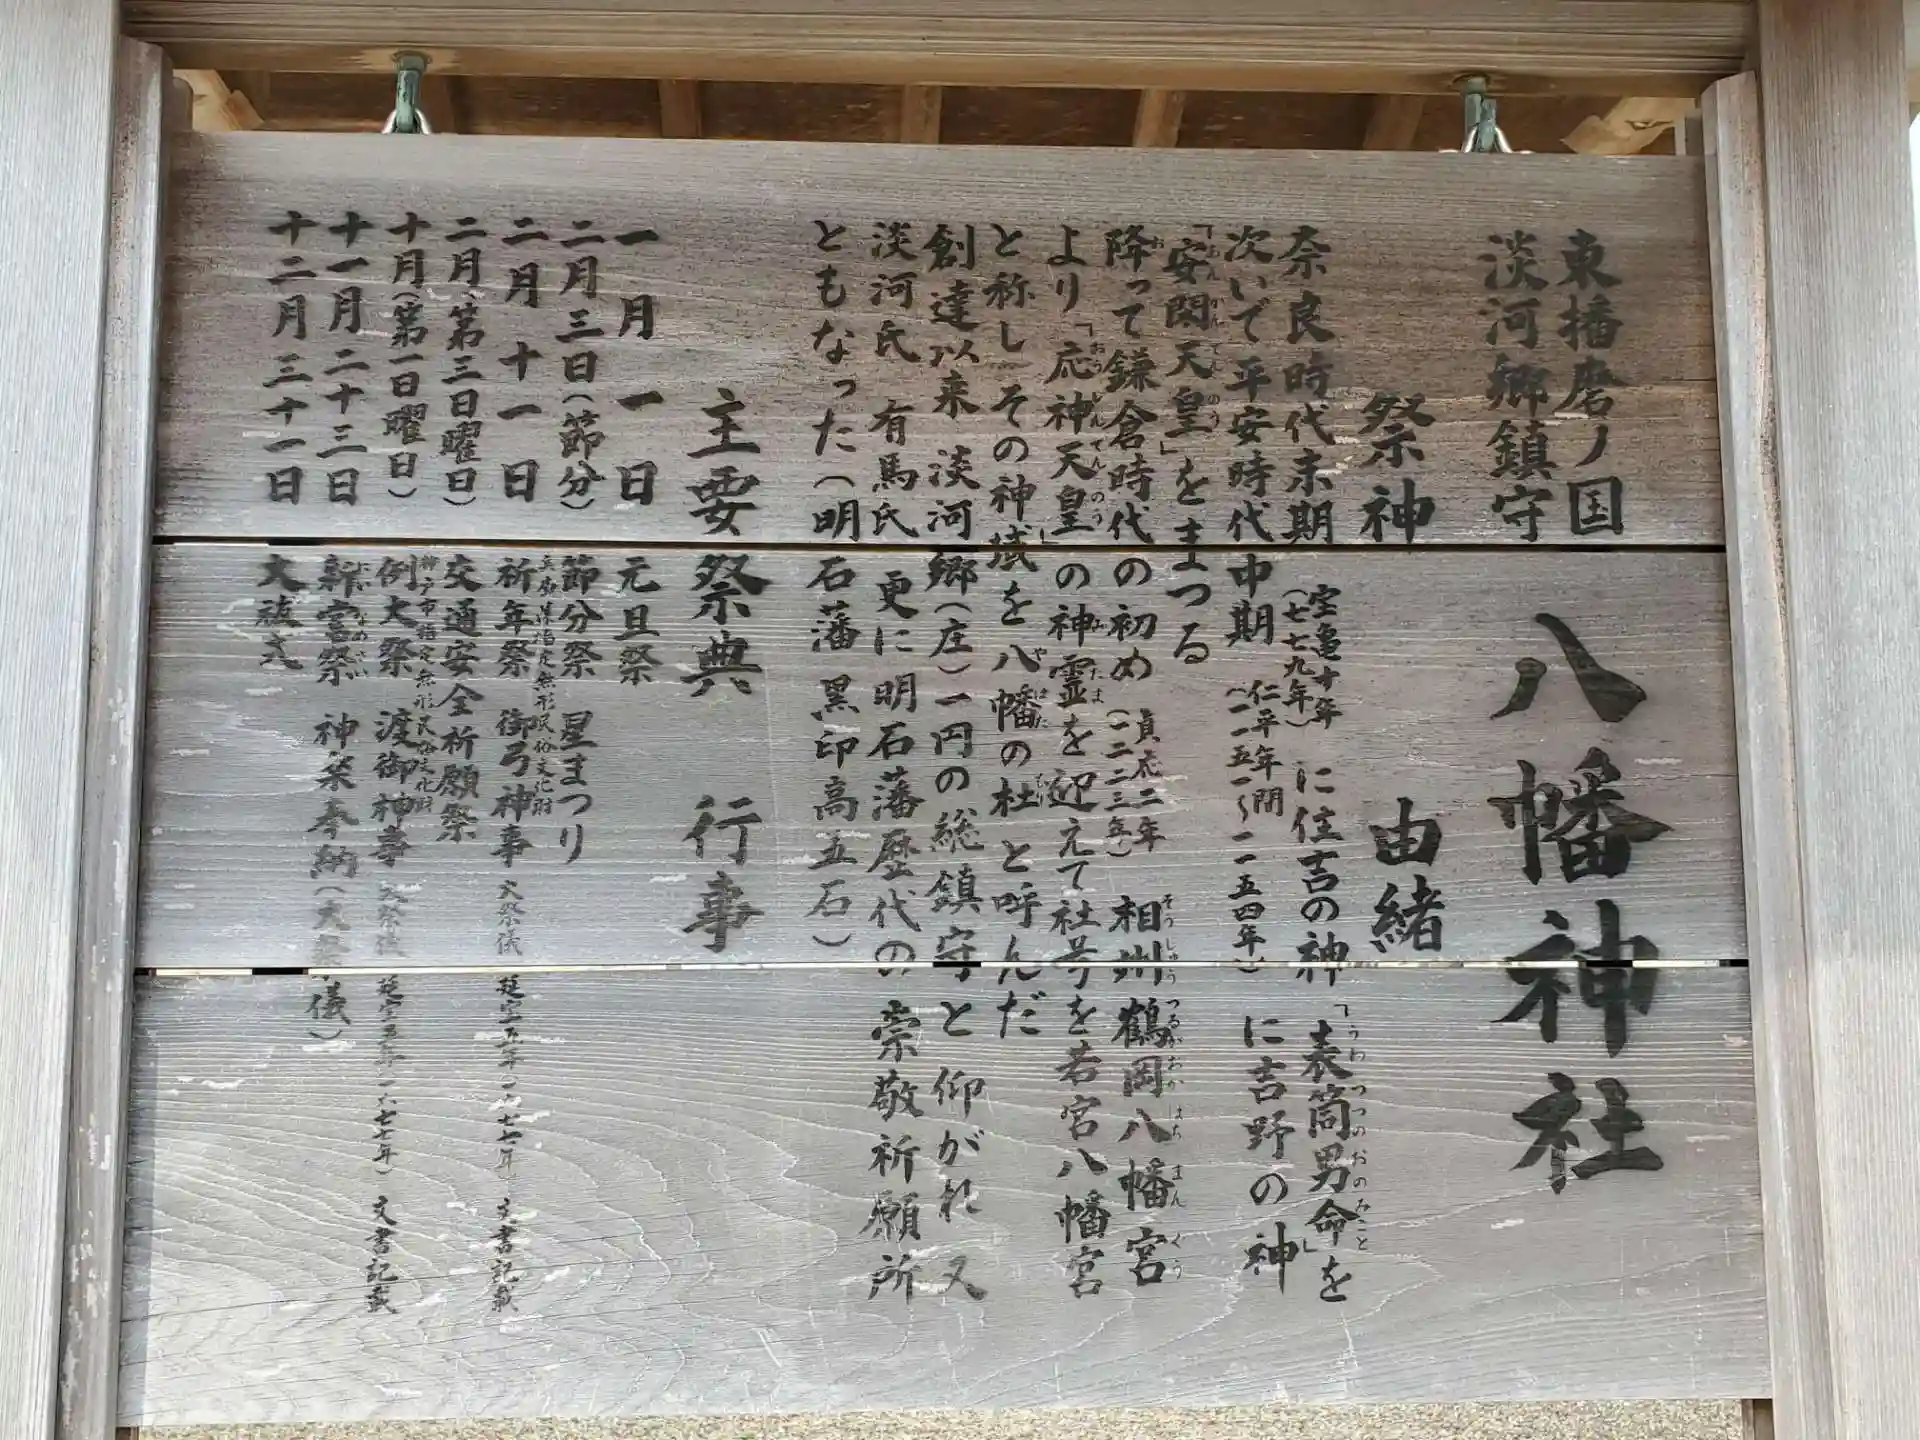 東播磨ノ国
淡河郷鎮守
八幡神社
祭神 由緒
奈良時代末期 宝亀十年(七七九年) に住吉の神「表筒男命」を
次いで平安時代中期 仁平年間(一一五一～一一五四年) に吉野の神
「安閑天皇」をまつる
降って鎌倉時代の初め 貞応二年(一二二三年) 相州鶴岡八幡宮
より「応神天皇」の神霊を迎えて社号を若宮八幡宮
と称し その神域を八幡の杜と呼んだ
創達以来 淡河郷(庄)一円の総鎮守と仰がれ 又
淡河氏 有馬氏 更に明石藩歴代の崇敬祈願所
ともなった(明石藩 黒印高五石)
主要祭典 行事
一月 一日 元旦祭
二月三日(節分) 節分祭 星まつり
兵庫県指定無形民俗文化財
二月 十一日 祈年祭 御弓神事 大祭儀 延宝五年(一六七七年) 文書記載
二月(第三日曜日) 交通安全祈願祭
神戸市指定無形民俗文化財
十月(第一日曜日) 例大祭 渡御神事 大祭儀 延宝五年(一六七七年) 文書記載
十一月二十三日 新嘗祭 神楽奉納(大祭儀)
十二月三十一日 大祓式